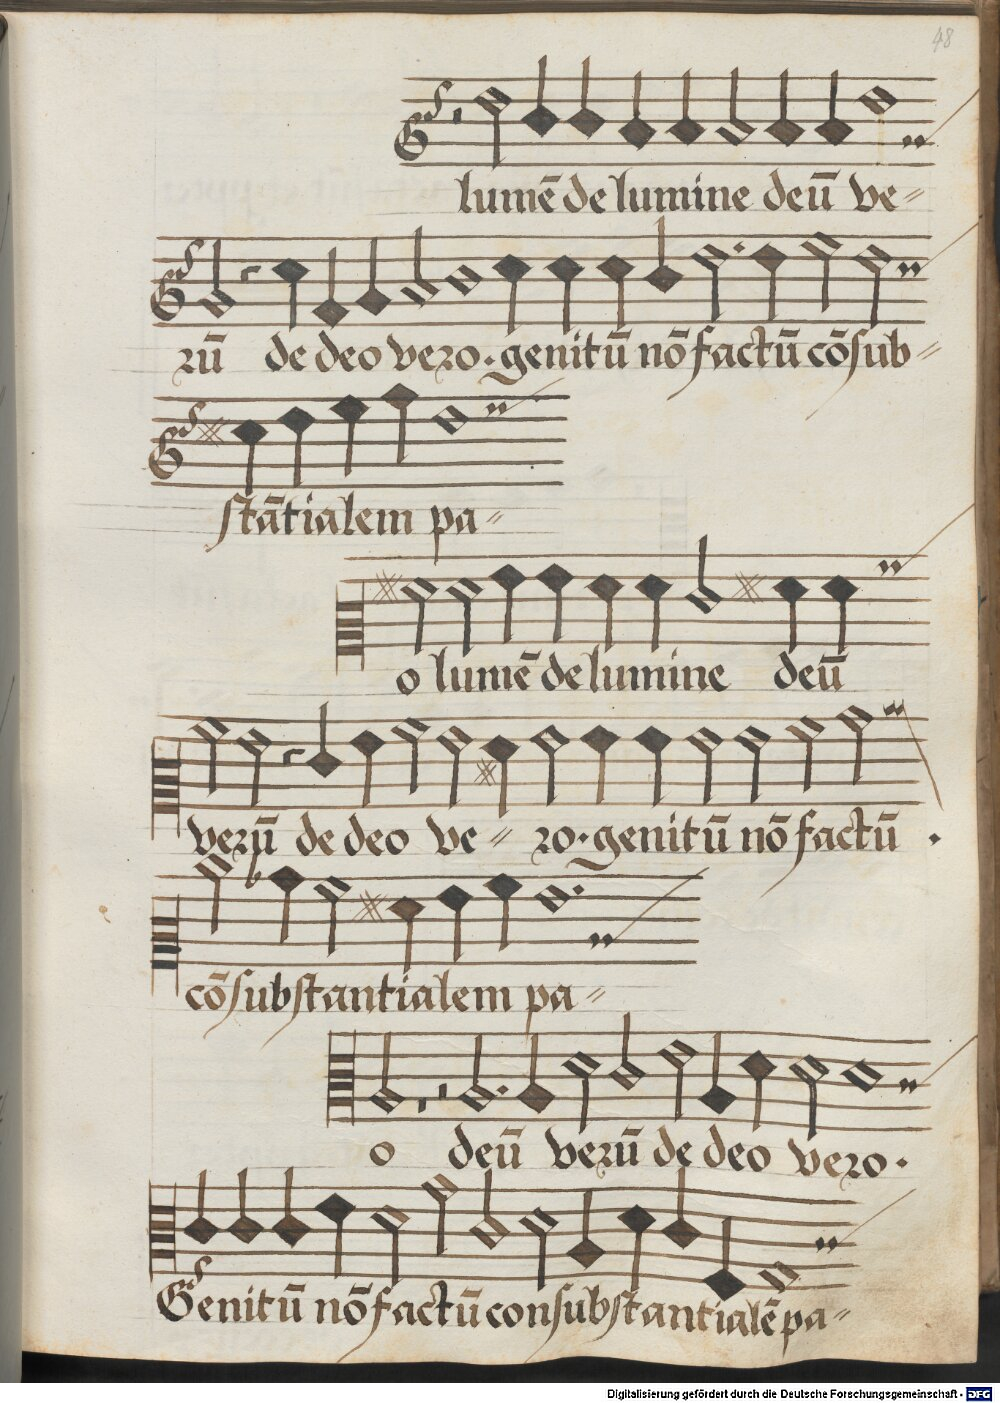 48
lumē de lumine deū ve⸗
rū de deo vero · genitū nō factū cōsub⸗
stātialem pa⸗
o lumē de lumine deū
verū de deo ve⸗ ro · genitū nō factū ·
cōsubstantialem pa⸗
o deū verū de deo vero ·
Genitū nō factū consubstantialē pa⸗
Digitalisierung gefördert durch die Deutsche Forschungsgemeinschaft - DFG